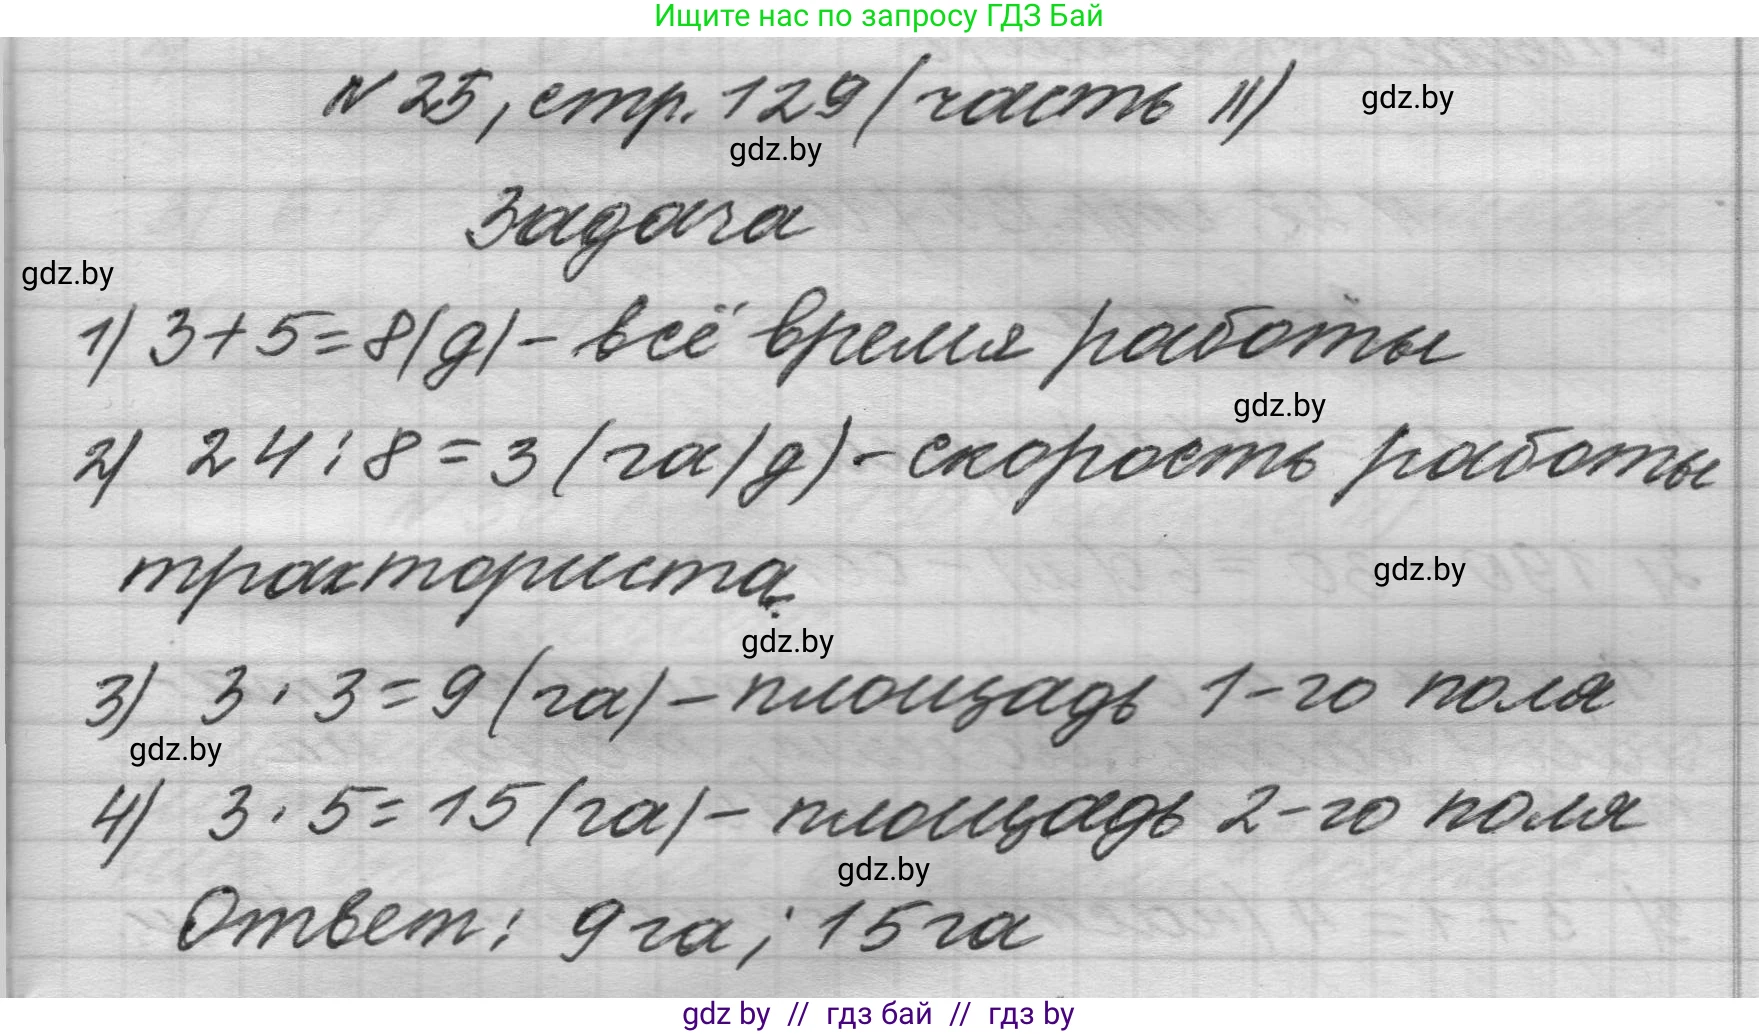 Ищите нас по запросу ГДЗ Бай
№25, стр. 129 (часть II)
gdz.by
gdz.by
Задача
gdz.by
1) 3+5=8(д) - всё время работы
gdz.by
2) 24:8=3 (га/д) - скорость работы
тракториста.
gdz.by
gdz.by
3) 3·3=9 (га) - площадь 1-го поля
gdz.by
4) 3·5=15 (га) - площадь 2-го поля
gdz.by
Ответ: 9га; 15га
gdz by // гдз бай // гдз by